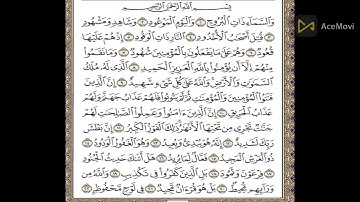 AceMovi
بِسْمِ ٱللَّهِ ٱلرَّحْمَٰنِ ٱلرَّحِيمِ
وَٱلسَّمَآءِ ذَاتِ ٱلْبُرُوجِ ١ وَٱلْيَوْمِ ٱلْمَوْعُودِ ٢ وَشَاهِدٍ وَمَشْهُودٍ
٣ قُتِلَ أَصْحَٰبُ ٱلْأُخْدُودِ ٤ ٱلنَّارِ ذَاتِ ٱلْوَقُودِ ٥ إِذْ هُمْ عَلَيْهَا
قُعُودٌ ٦ وَهُمْ عَلَىٰ مَا يَفْعَلُونَ بِٱلْمُؤْمِنِينَ شُهُودٌ ٧ وَمَا نَقَمُوا۟
مِنْهُمْ إِلَّآ أَن يُؤْمِنُوا۟ بِٱللَّهِ ٱلْعَزِيزِ ٱلْحَمِيدِ ٨ ٱلَّذِى لَهُۥ مُلْكُ
ٱلسَّمَٰوَٰتِ وَٱلْأَرْضِ وَٱللَّهُ عَلَىٰ كُلِّ شَىْءٍ شَهِيدٌ ٩ إِنَّ ٱلَّذِينَ
فَتَنُوا۟ ٱلْمُؤْمِنِينَ وَٱلْمُؤْمِنَٰتِ ثُمَّ لَمْ يَتُوبُوا۟ فَلَهُمْ عَذَابُ جَهَنَّمَ وَلَهُمْ
عَذَابُ ٱلْحَرِيقِ ١٠ إِنَّ ٱلَّذِينَ ءَامَنُوا۟ وَعَمِلُوا۟ ٱلصَّٰلِحَٰتِ لَهُمْ
جَنَّٰتٌ تَجْرِى مِن تَحْتِهَا ٱلْأَنْهَٰرُ ذَٰلِكَ ٱلْفَوْزُ ٱلْكَبِيرُ ١١ إِنَّ بَطْشَ
رَبِّكَ لَشَدِيدٌ ١٢ إِنَّهُۥ هُوَ يُبْدِئُ وَيُعِيدُ ١٣ وَهُوَ ٱلْغَفُورُ ٱلْوَدُودُ ١٤
ذُو ٱلْعَرْشِ ٱلْمَجِيدُ ١٥ فَعَّالٌ لِّمَا يُرِيدُ ١٦ هَلْ أَتَىٰكَ حَدِيثُ ٱلْجُنُودِ
١٧ فِرْعَوْنَ وَثَمُودَ ١٨ بَلِ ٱلَّذِينَ كَفَرُوا۟ فِى تَكْذِيبٍ ١٩ وَٱللَّهُ مِن
وَرَآئِهِم مُّحِيطٌۢ ٢٠ بَلْ هُوَ قُرْءَانٌ مَّجِيدٌ ٢١ فِى لَوْحٍ مَّحْفُوظٍۭ ٢٢